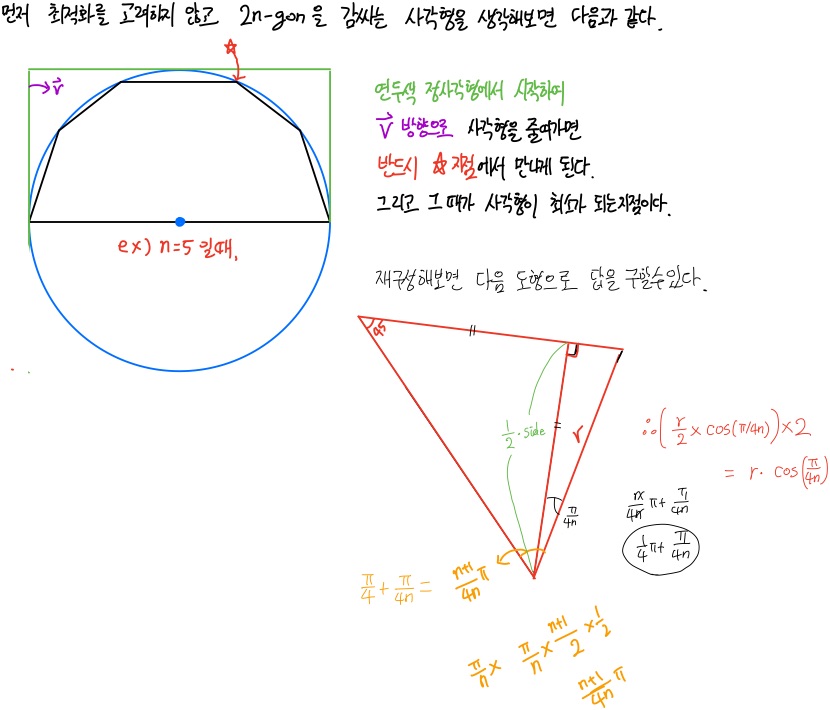 먼저 최적화를 고려하지 않고 2n-gon을 감싸는 사각형을 생각해보면 다음과 같다.
☆
v⃗
연두색 정사각형에서 시작하여
v⃗ 방향으로 사각형을 줄여가면
반드시 ☆지점에서 만나게 된다.
그리고 그 때가 사각형이 최소가 되는지점이다.
ex) n=5 일때,
재구성해보면 다음 도형으로 답을 구할수있다.
45
1/2 · side
r
π/4n
∴ (r/2 × cos(π/4n)) × 2
= r · cos(π/4n)
π + π/4n
1/4 π + π/4n
π/4 + π/4n = n+1/4n π
π/n × π/n × n+1/2 × 1/2
n+1/4n π